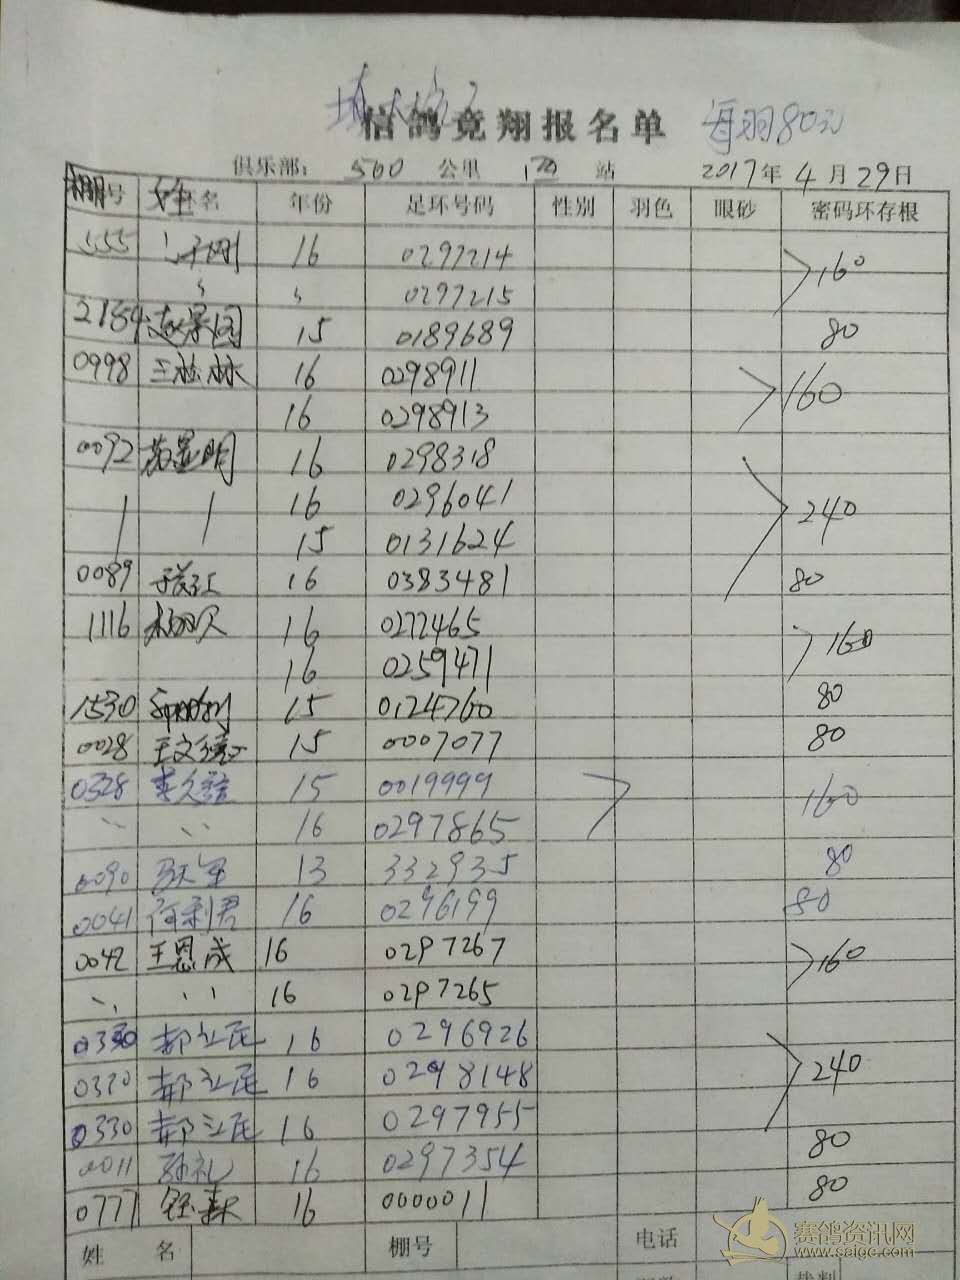 信鸽竞翔报名单 每羽80元
俱乐部: 500 公里 站 2017年4月29日
棚号 姓名 年份 足环号码 性别 羽色 眼砂 密码环存根
刚 16 0297214 160
〃 〃 0297215
赵景园 15 0189689 80
0998 王桂林 16 0298911 160
16 0298913
0092 苏显明 16 0298318
16 0296041 240
15 0131624
0089 16 0383481 80
1116 16 0272465 160
16 0259471
1530 15 0124760 80
0028 王文 15 0007077 80
0328 李久 15 0019999 160
〃 〃 16 0297865
0090 13 332935 80
0041 何利君 16 0296199 80
0042 王恩成 16 0297267 160
〃 〃 16 0297265
0330 郝立民 16 0296926
郝立民 16 0298148 240
0330 郝立民 16 0297955
0011 孙礼 16 0297354 80
0777 16 0000011 80
姓名 棚号 电话
裁判
赛鸽资讯网
www.saige.com